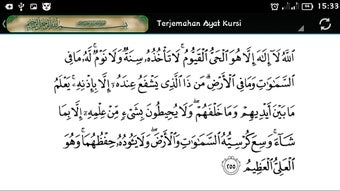 15:33
Terjemahan Ayat Kursi
اللَّهُ لَا إِلَٰهَ إِلَّا هُوَ الْحَيُّ الْقَيُّومُ ۚ لَا تَأْخُذُهُ سِنَةٌ وَلَا نَوْمٌ ۚ لَهُ مَا فِي
السَّمَاوَاتِ وَمَا فِي الْأَرْضِ ۗ مَنْ ذَا الَّذِي يَشْفَعُ عِنْدَهُ إِلَّا بِإِذْنِهِ ۚ يَعْلَمُ
مَا بَيْنَ أَيْدِيهِمْ وَمَا خَلْفَهُمْ ۖ وَلَا يُحِيطُونَ بِشَيْءٍ مِنْ عِلْمِهِ إِلَّا بِمَا
شَاءَ ۚ وَسِعَ كُرْسِيُّهُ السَّمَاوَاتِ وَالْأَرْضَ ۖ وَلَا يَئُودُهُ حِفْظُهُمَا ۚ وَهُوَ
الْعَلِيُّ الْعَظِيمُ ٢٥٥